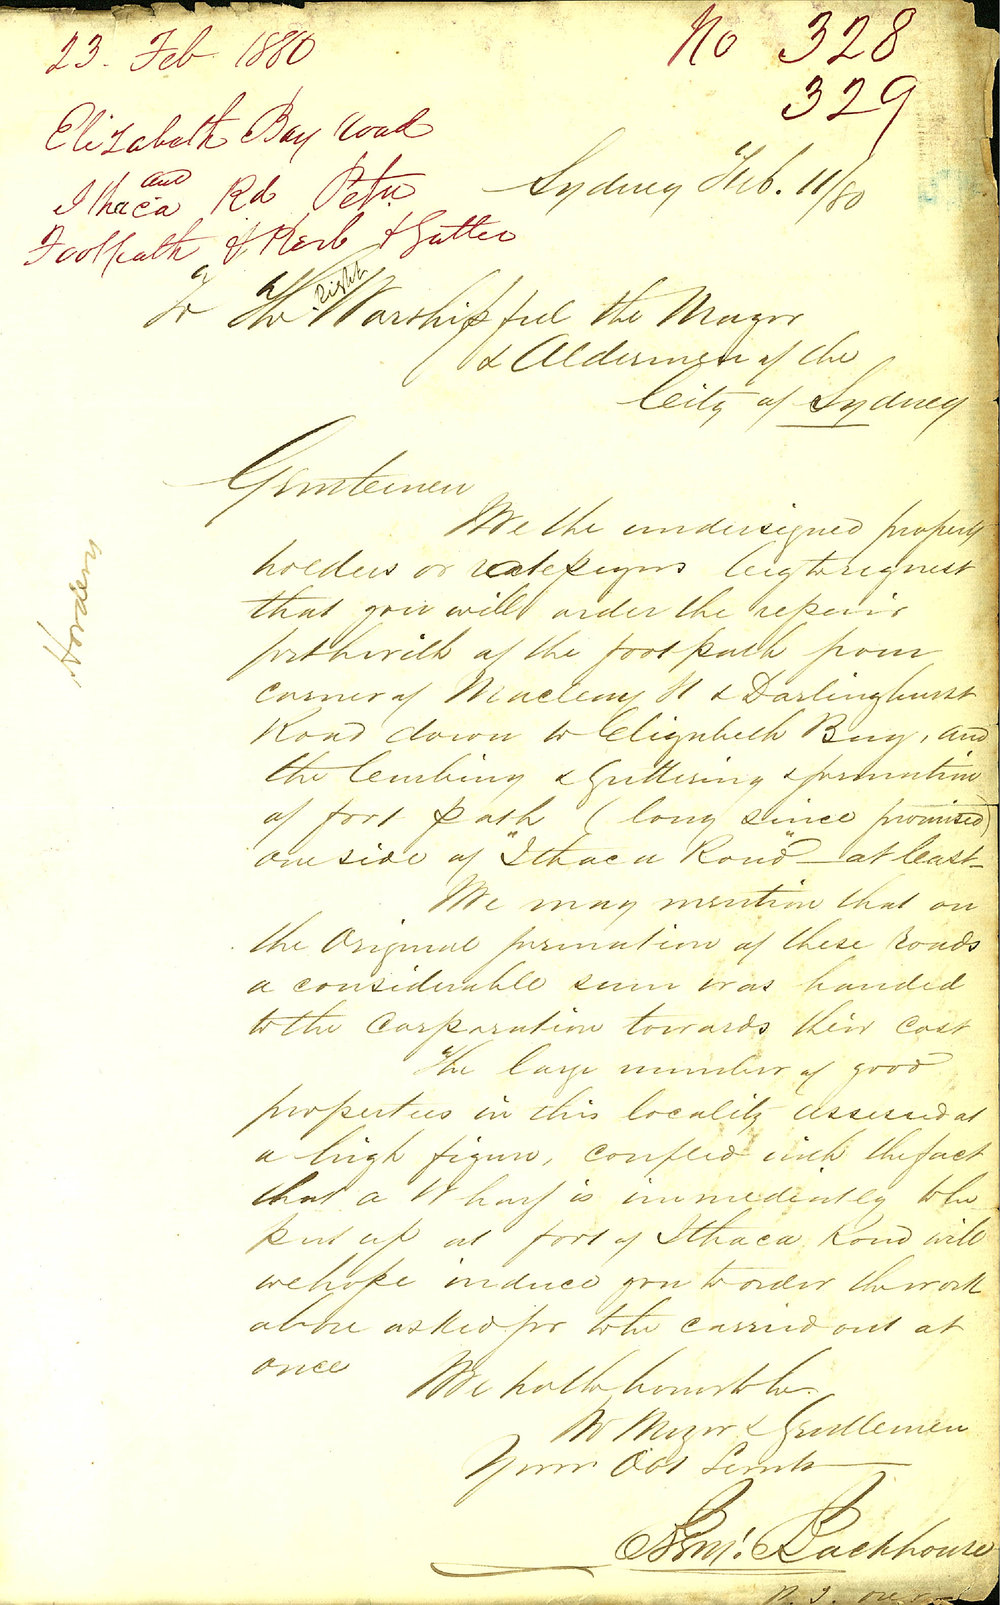 23. Feb 1880
No 328
329
Elizabeth Bay Road
and
Ithaca Rd Petn
Footpath & Kerb & Gutter
Sydney Feb. 11/80
To The Right Worshipful the Mayor
& Aldermen of the
City of Sydney
Gentlemen
We the undersigned property
holders or ratepayers beg to request
that you will order the repair
forthwith of the footpath from
corner of Macleay St & Darlinghurst
Road down to Elizabeth Bay, and
the Curbing & Guttering & formation
of foot path (long since promised)
one side of "Ithaca Road" at least
We may mention that on
the Original formation of these roads
a considerable sum was handed
to the Corporation towards their cost
The large number of good
properties in this locality assessed at
a high figure, coupled with the fact
that a Wharf is immediately to be
put up at foot of Ithaca Road will
we hope induce you to order the work
above asked for to be carried out at
once
We have the honor to be
Mr Mayor & Gentlemen
Your Obt Servts
Benj. Backhouse
Hordern